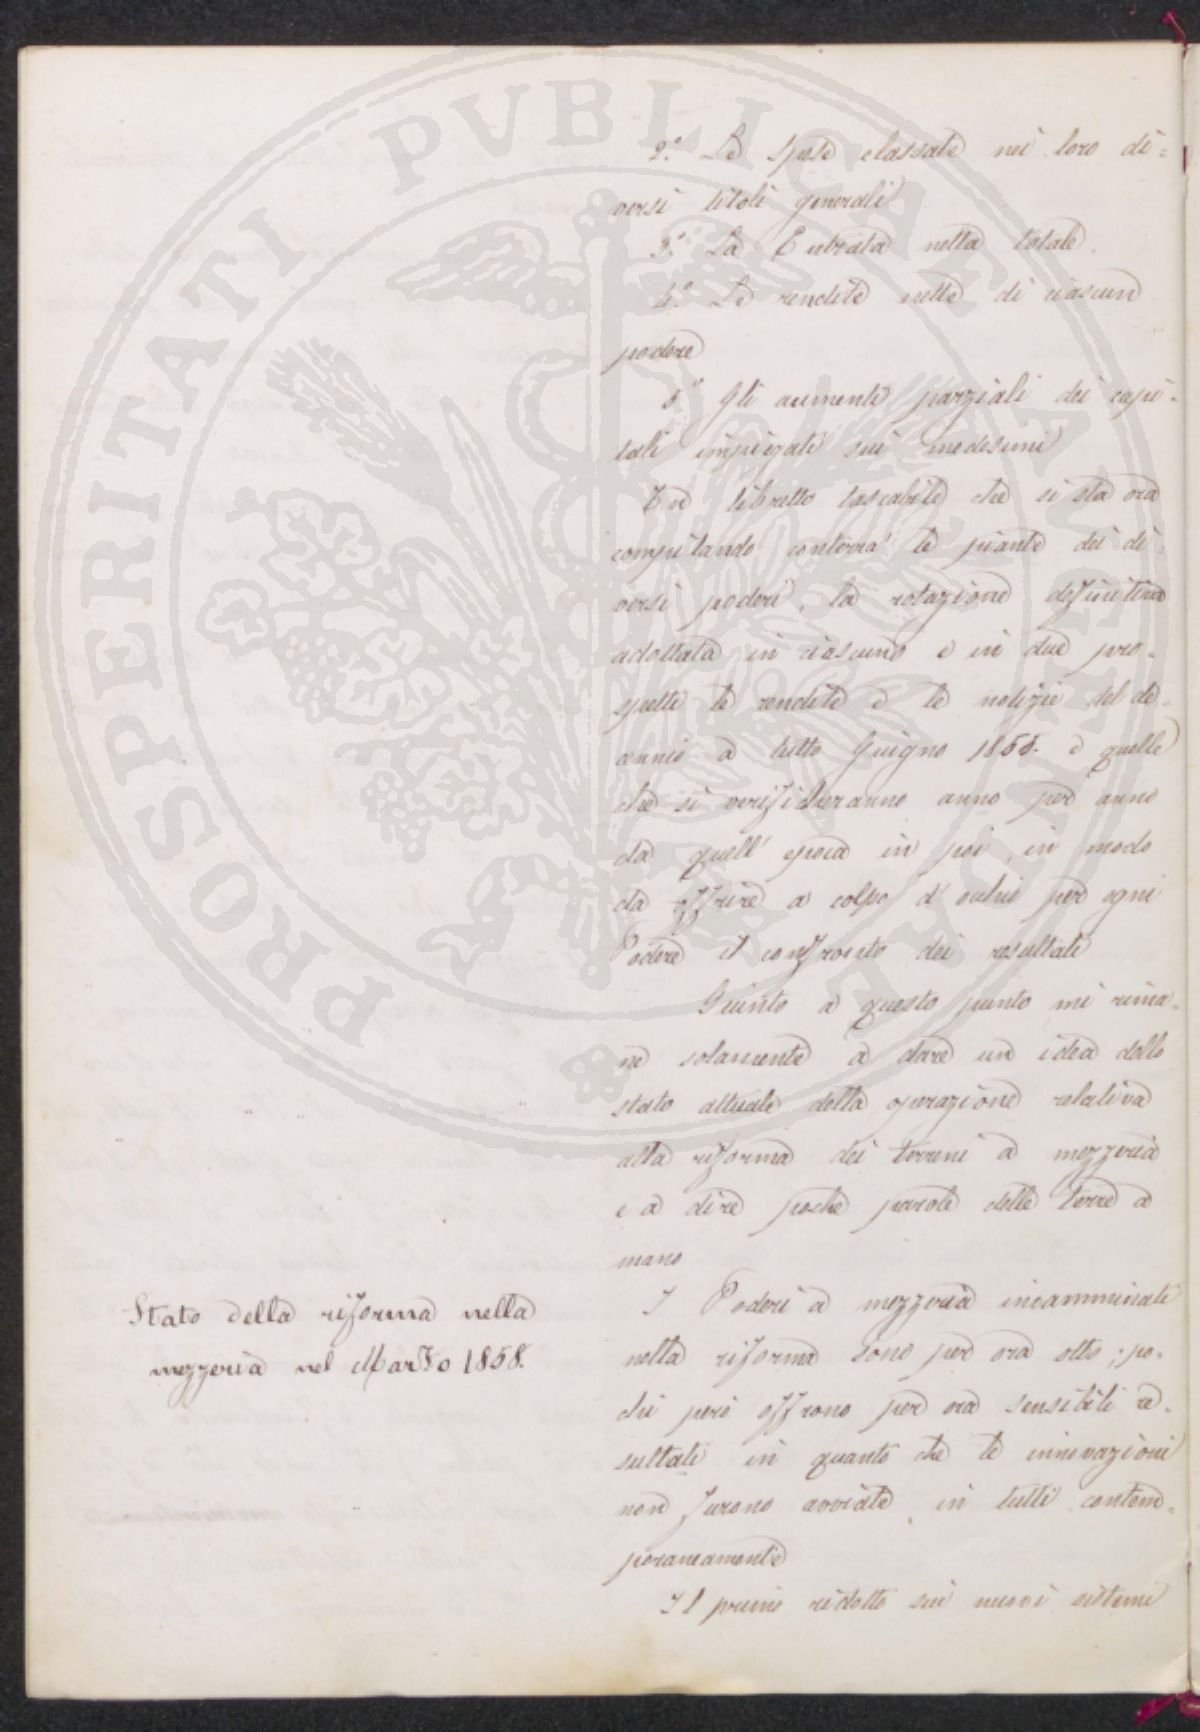 2.° Le spese classate nei loro di=
versi titoli generali
3.° La Entrata netta totale.
4.° Le rendite nette di ciascun
podere
5° Gli aumenti parziali dei capi-
tali impiegati sui medesimi
Un libretto tascabile che si sta ora
compilando conterrà le piante dei di-
versi poderi, la rotazione definitiva
adottata in ciascuno e in due pro-
spetti le rendite e le notizie del de-
cennio a tutto Giugno 1858. e quelle
che si verificheranno anno per anno
da quell'epoca in poi, in modo
da offrire a colpo d'occhio per ogni
Podere il confronto dei resultati
Giunto a questo punto mi rima-
ne solamente a dare un idea dello
stato attuale della operazione relativa
alla riforma dei terreni a mezzeria
e a dire poche parole delle terre a
mano
Stato della riforma nella
mezzeria nel Marzo 1858.
I Poderi a mezzeria incamminati
nella riforma sono per ora otto; po-
chi però offrono per ora sensibili re-
sultati in quanto che le innovazioni
non furono avviate in tutti contem-
poraneamente
Il primo ridotto sui nuovi sistemi
PROSPERITATI PVBLICAE AVGENDAE